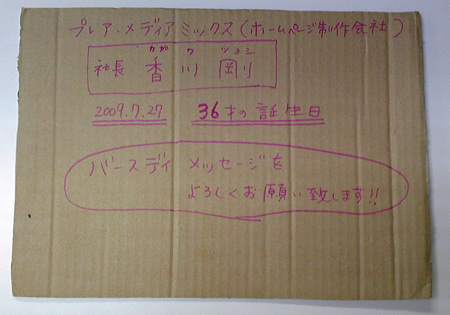 プレア・メディアミックス(ホームページ制作会社)
カガワ ツヨシ
社長 香川 剛
2009.7.27 36才の誕生日
バースディ メッセージを
よろしくお願い致します!!